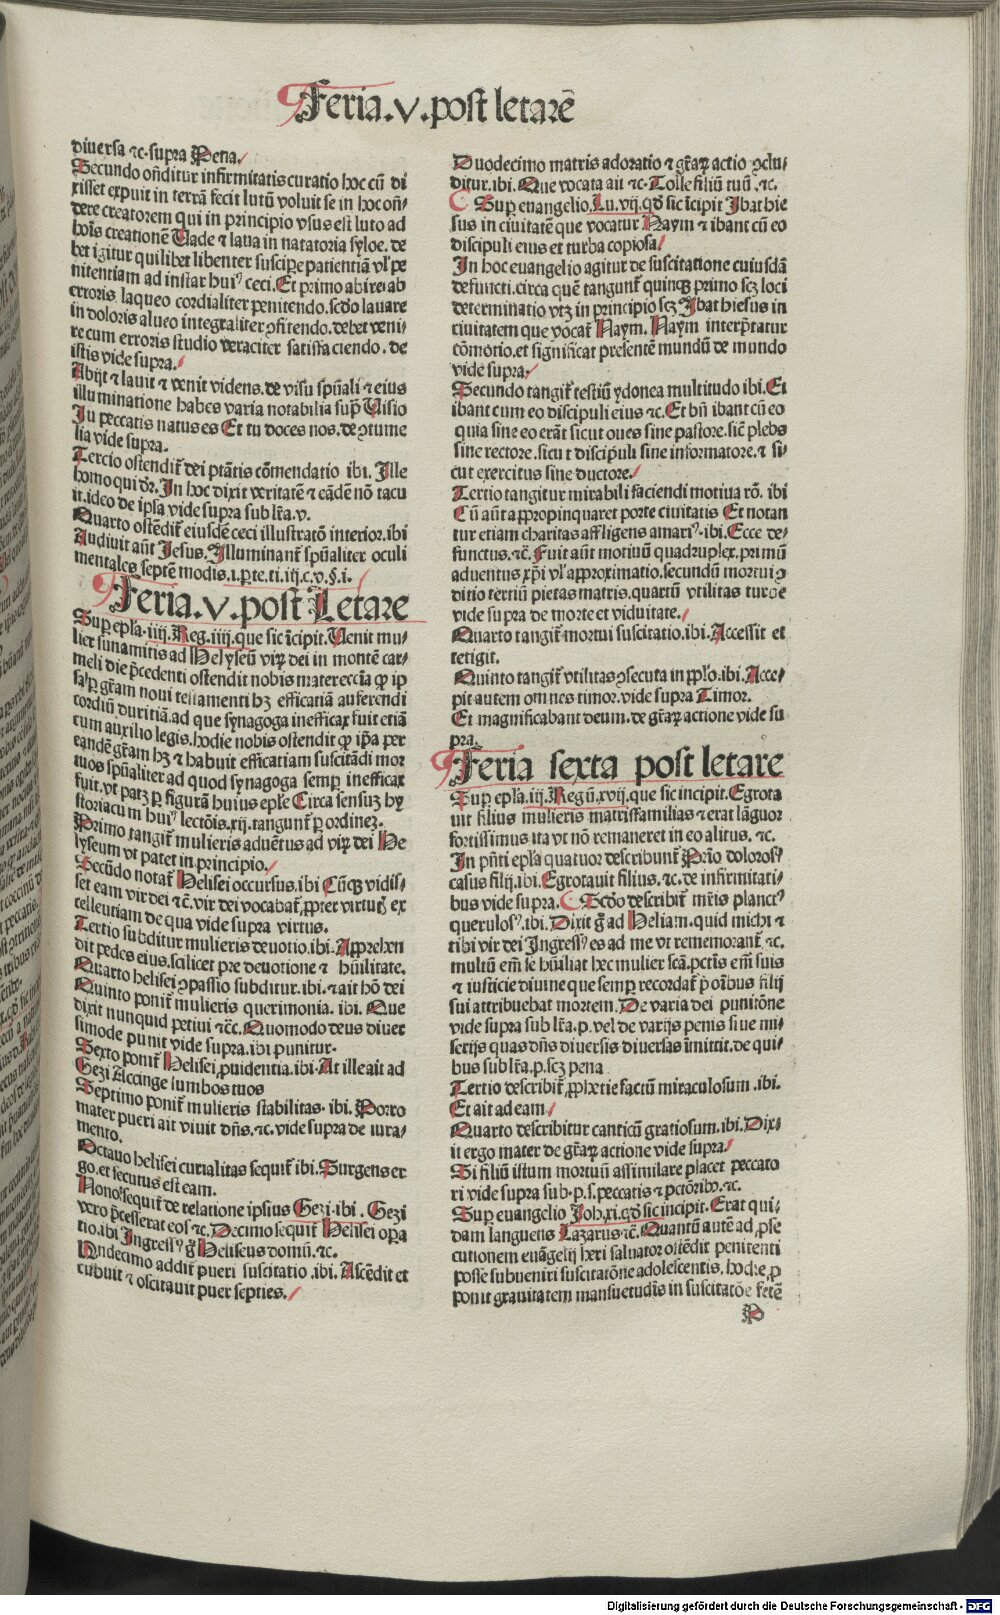 Feria.v.post letarē
diuersa ⁊c.supra Pena.
Secundo ondītur infirmitatis curatio hoc cū di
xisset expuit in terrā fecit lutū voluit se in hoc on̄
dere creatorem qui in principio vsus est luto ad
hoīs creationē Uade ⁊ laua in natatoria syloe. de
bet igitur quilibet libenter suscipe patientiā vl' pe
nitentiam ad instar huiꝰ ceci. Et primo abire ab
erroris laqueo cordialiter penitendo. scdo lauare
in doloris alueo integraliter ꝯfitendo. debet veni⸗
re cum erroris studio veraciter satisfaciendo. de
istis vide supra.
Abijt ⁊ lauit ⁊ venit videns. de visu spūali ⁊ eius
illuminatione habes varia notabilia sup̄ Visio
In peccatis natus es Et tu doces nos. de ꝯtume
lia vide supra.
Tercio ostendit̄ dei ptātis cōmendatio ibi. Ille
homo qui dr̄. In hoc dixit veritatē ⁊ eādē nō tacu
it. ideo de ipsa vide supra sub lr̄a. v.
Quarto ostēdit̄ eiusdē ceci illustratō interior. ibi
Audiuit aūt Jesus. Illuminant̄ spūaliter oculi
mentales septē modis .i.p̱te.ti.iij.c.v.§.i.
Feria.v.post Letare
Sup̱ ep̄la .iiij.Reg.iiij. que sic īcipit. Uenit mu⸗
lier sunamitis ad Helyseū virū dei in montē car⸗
meli die p̄cedenti ostendit nobis mater eccīa ꝙ ip
sa ꝑ gr̄am noui testamenti hꝫ efficatiā auferendi
cordiū duritiā. ad que synagoga inefficax fuit etiā
cum auxilio legis. hodie nobis ostendit ꝙ ip̄a per
eandē gr̄am hꝫ ⁊ habuit efficatiam suscitādi mor
tuos spūaliter ad quod synagoga semp̱ inefficax
fuit. vt patꝫ ꝑ figurā huius eple Circa sensuꝫ hy
storiacum huiꝰ lectōis .xij. tangunt̄ ꝑ ordineꝫ.
Primo tangit̄ mulieris aduētus ad virū dei He
lyseum vt patet in principio.
Secūdo notat̄ Helisei occursus. ibi Cūqꝫ vidis⸗
set eam vir dei ⁊c̄. vir dei vocabat̄ ꝓpter virtutū ex
cellentiam de qua vide supra virtus.
Tertio subditur mulieris deuotio .ibi. Apprehen
dit pedes eius. scilicet pre deuotione ⁊ hūilitate.
Quarto helisei ꝯpassio subditur .ibi. ⁊ ait hō dei
Quinto ponit̄ mulieris querimonia. ibi. Que
dixit nunquid petiui ⁊c̄c. Quomodo deus diuer
simode punit vide supra. ibi punitur.
Sexto ponit̄ Helisei ꝓuidentia. ibi. At ille ait ad
Gezi Accinge lumbos tuos
Septimo ponit̄ mulieris stabilitas. ibi. Porro
mater pueri ait viuit dn̄s. ⁊c. vide supra de iura⸗
mento.
Octauo helisei curialitas sequit̄ ibi. Surgens er
go. et secutus est eam.
Nono sequit̄ de relatione ipsius Gezi. ibi. Gezi
vero p̄cesserat eos ⁊c. Decimo sequit̄ Helisei opa
tio. ibi Ingressꝰ ḡ Heliseus domū. ⁊c.
Undecimo addit̄ pueri suscitatio .ibi. Ascēdit et
cubuit ⁊ oscitauit puer septies.
Duodecimo matris adoratio ⁊ gr̄aꝝ actio ꝯclu⸗
ditur. ibi. Que vocata ait ⁊c. Tolle filiū tuū .⁊c.
Sup̱ euangelio, Lu.vij. qd̄ sic īcipit Ibat hie
sus in ciuitatē que vocatur Naym ⁊ ibant cū eo
discipuli eius et turba copiosa
In hoc euangelio agitur de suscitatione cuiusdā
defuncti. circa quē tangunt̄ quinqꝫ primo scꝫ loci
determinatio vtꝫ in principio scꝫ Ibat hiesus in
ciuitatem que vocat̄ Naym. Naym interp̄tatur
cōmotio. et significat presentē mundū de mundo
vide supra.
Secundo tangit̄ testiū ydonea multitudo ibi. Et
ibant cum eo discipuli eius ⁊c. Et bn̄ ibant cū eo
quia sine eo erāt sicut oues sine pastore. sic̄ plebs
sine rectore. sicut discipuli sine informatore. ⁊ si⸗
cut exercitus sine ductore.
Tertio tangitur mirabili faciendi motiua rō. ibi
Cū aūt appropinquaret porte ciuitatis Et notan
tur etiam charitas affligens amariꝰ. ibi. Ecce de⸗
functus. ⁊c̄. Fuit aūt motiuū quadruplex. primū
aduentus xp̄i vl' approximatio. secundū mortui ꝯ
ditio tertiū pietas matris. quartū vtilitas turbe
vide supra de morte et viduitate.
Quarto tangit̄ mortui suscitatio .ibi. Accessit et
tetigit.
Quinto tangit̄ vtilitas ꝯsecuta in pplo. ibi. Acce⸗
pit autem omnes timor. vide supra Timor.
Et magnificabant deum. de gr̄aꝝ actione vide su
pra.
Feria sexta post letare
Sup̱ ep̄la .iij. Regū .xvij. que sic incipit. Egrota
uit filius mulieris matrisfamilias ⁊ erat lāguor
fortissimus ita vt nō remaneret in eo alitus. ⁊c.
In pn̄ti ep̄la quatuor describunt̄ Prio dolorosꝰ
casus filij. ibi. Egrotauit filius. ⁊c. de infirmitati⸗
bus vide supra. Scdo describit̄ mr̄is planctꝰ
querulosꝰ. ibi. Dixit ḡ ad Heliam. quid michi ⁊
tibi vir dei Ingressꝰ es ad me vt rememorant̄ ⁊c.
multū em̄ se hūiliat hec mulier scā. pctīs em̄ suis
⁊ iusticie diuine que semp̱ recordat̄ p̄ oībus filij
sui attribuebat mortem. De varia dei punitōne
vide supra sub lr̄a. p. vel de varijs penis siue mi⸗
serijs quas dn̄s diuersis diuersas īmittit. de qui⸗
bus sub lr̄a. p. scꝫ pena
Tertio describit̄ ꝓphetie factū miraculosum .ibi.
Et ait ad eam
Quarto describitur canticū gratiosum. ibi. Dix⸗
it ergo mater de gr̄aꝝ actione vide supra
Si filiū istum mortuū assimilare placet peccato
ri vide supra sub. p. s. peccatis ⁊ pctōribꝰ. ⁊c.
Sup̱ euangelio Joh.xi. qd̄ sic incipit. Erat qui⸗
dam languens Lazarus ⁊c̄. Quantū autē ad ꝓse
cutionem euāgelij heri saluator ostēdit penitenti
posse subueniri suscitatōne adolescentis. hodie ꝓ
ponit grauitatem mansuetudīs in suscitatōe fetē
P
Digitalisierung gefördert durch die Deutsche Forschungsgemeinschaft - DFG